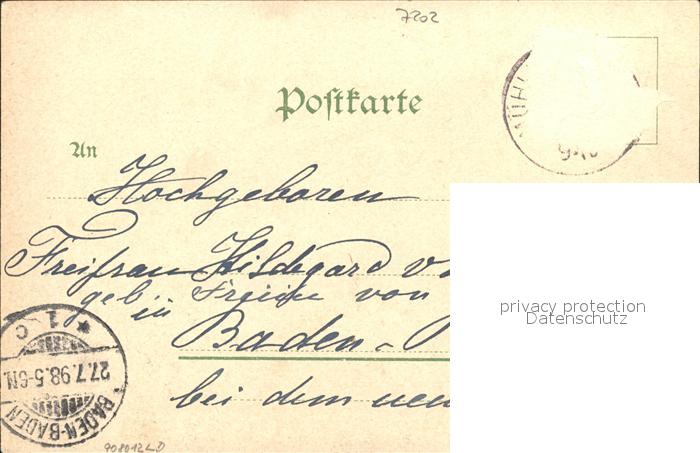 7202
Postkarte
MÜHL
An
Hochgeboren
Freifrau Hildegard v
geb. Freiin von
in
Baden-
bei dem neu
privacy protection
Datenschutz
* 1 C
27.7.98.5-6N.
BADEN-BADEN
908012LD